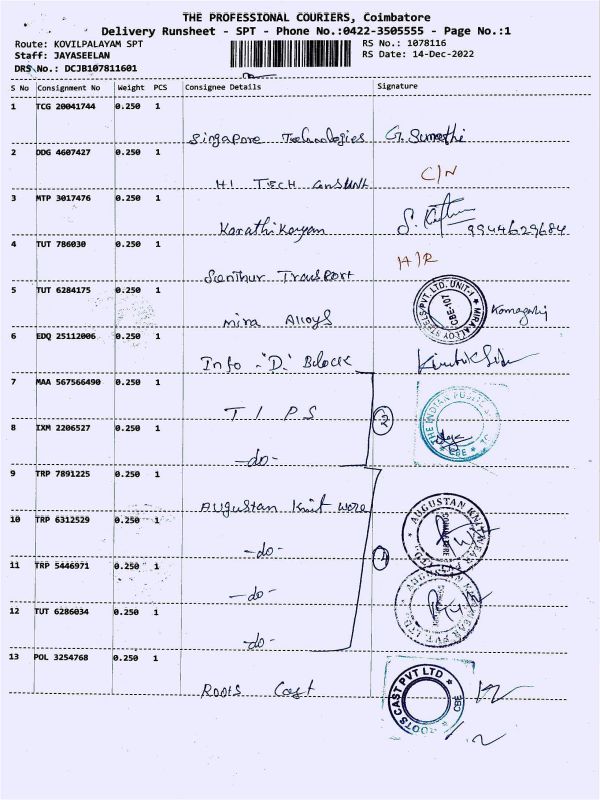 THE PROFESSIONAL COURIERS, Coimbatore
Delivery Runsheet - SPT - Phone No.:0422-3505555 - Page No.:1
Route: KOVILPALAYAM SPT RS No.: 1078116
Staff: JAYASEELAN RS Date: 14-Dec-2022
DRS No.: DCJB107811601
S No Consignment No Weight PCS Consignee Details Signature
1 TCG 20041744 0.250 1
Singapore Technologies G. Sumathi
2 DDG 4607427 0.250 1
HI TECH C/N
3 MTP 3017476 0.250 1
Karathikeyan 9944629684
4 TUT 786030 0.250 1 H/R
Senthur Transport
5 TUT 6284175 0.250 1
Mira Alloys MIRA ALLOY STEELS PVT. LTD. UNIT-1 CBE-107
6 EDQ 25112006 0.250 1
Info "D" Block
7 MAA 567566490 0.250 1
T I P S 2 THE INDIAN PUBLIC CBE
8 IXM 2206527 0.250 1
-do-
9 TRP 7891225 0.250 1
Augustan Knit Wore
10 TRP 6312529 0.250 1 AUGUSTAN KNITWEAR
-do- 4
11 TRP 5446971 0.250 1
-do- AUGUSTAN KNITWEAR PVT LTD
12 TUT 6286034 0.250 1
-do-
13 POL 3254768 0.250 1
Roots Cast ROOTS CAST PVT LTD CBE